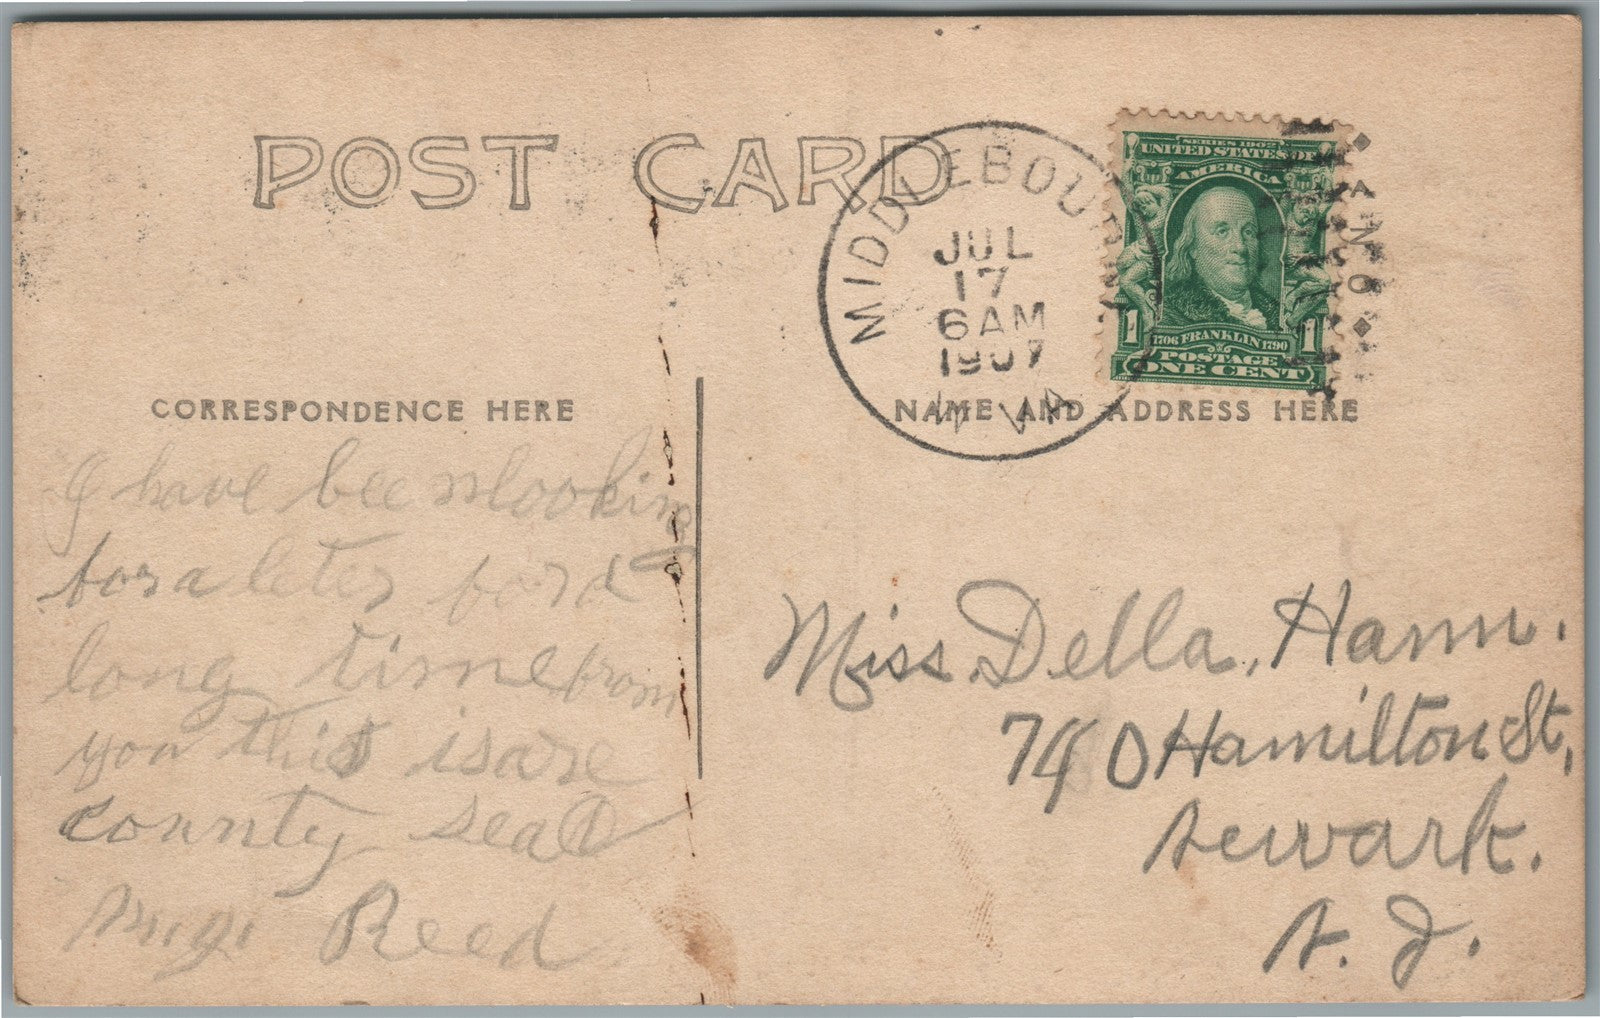 POST CARD
MIDDLEBOURNE
JUL
17
6 AM
1907
W. VA
SERIES 1902
UNITED STATES OF
AMERICA
1706 FRANKLIN 1790
1 1
POSTAGE
ONE CENT
CORRESPONDENCE HERE
I have been looking
for a leter for a
long time from
you this is are
county seat
Reed
NAME AND ADDRESS HERE
Miss. Della. Hann.
740 Hamilton St,
Newark.
N. J.